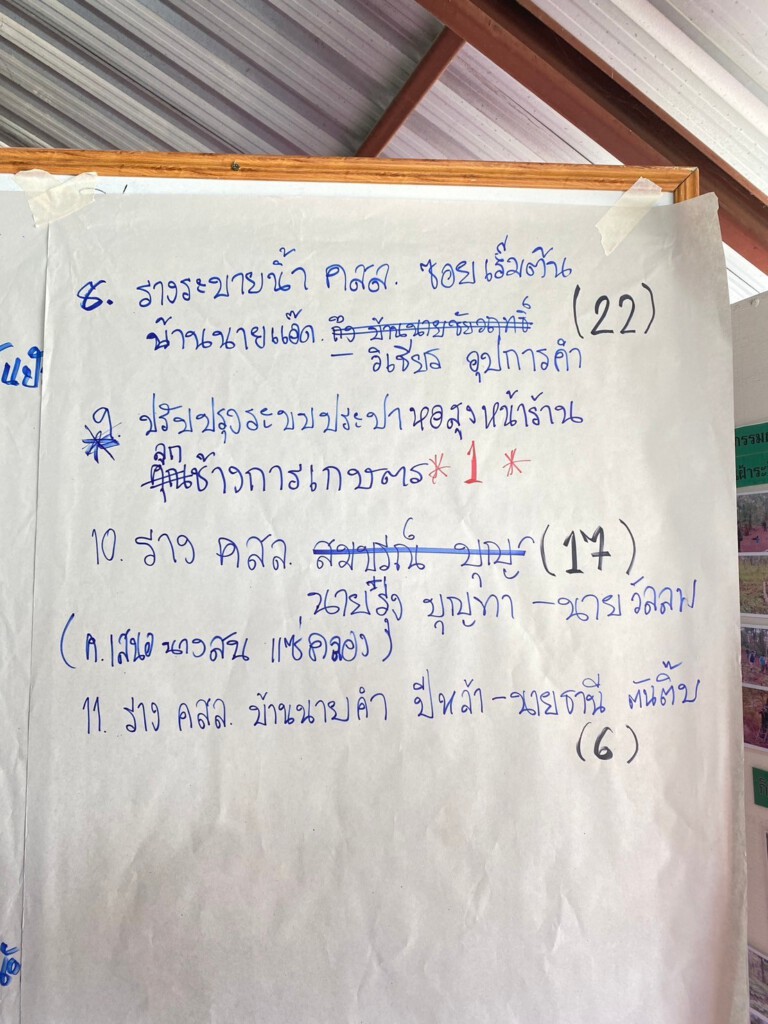 8. รางระบายน้ำ คสล. ซอยเริ่มต้น
บ้านนายแอ๊ด. ถึง บ้านนายชัยฤทธิ์ (22)
– วิเชียร อุปการคำ
9. ปรับปรุงระบบประปาหอสูงหน้าร้าน
ลูก
ช้างการเกษตร * 1 *
10. ราง คสล. สมบูรณ์ บุญ (17)
นายรุ่ง บุญทา – นายวัลลพ
(ค.เสนอ นางสน แซ่คลอง)
11. ราง คสล. บ้านนายคำ ปีหล้า – นายธานี ตันติ๊บ
(6)